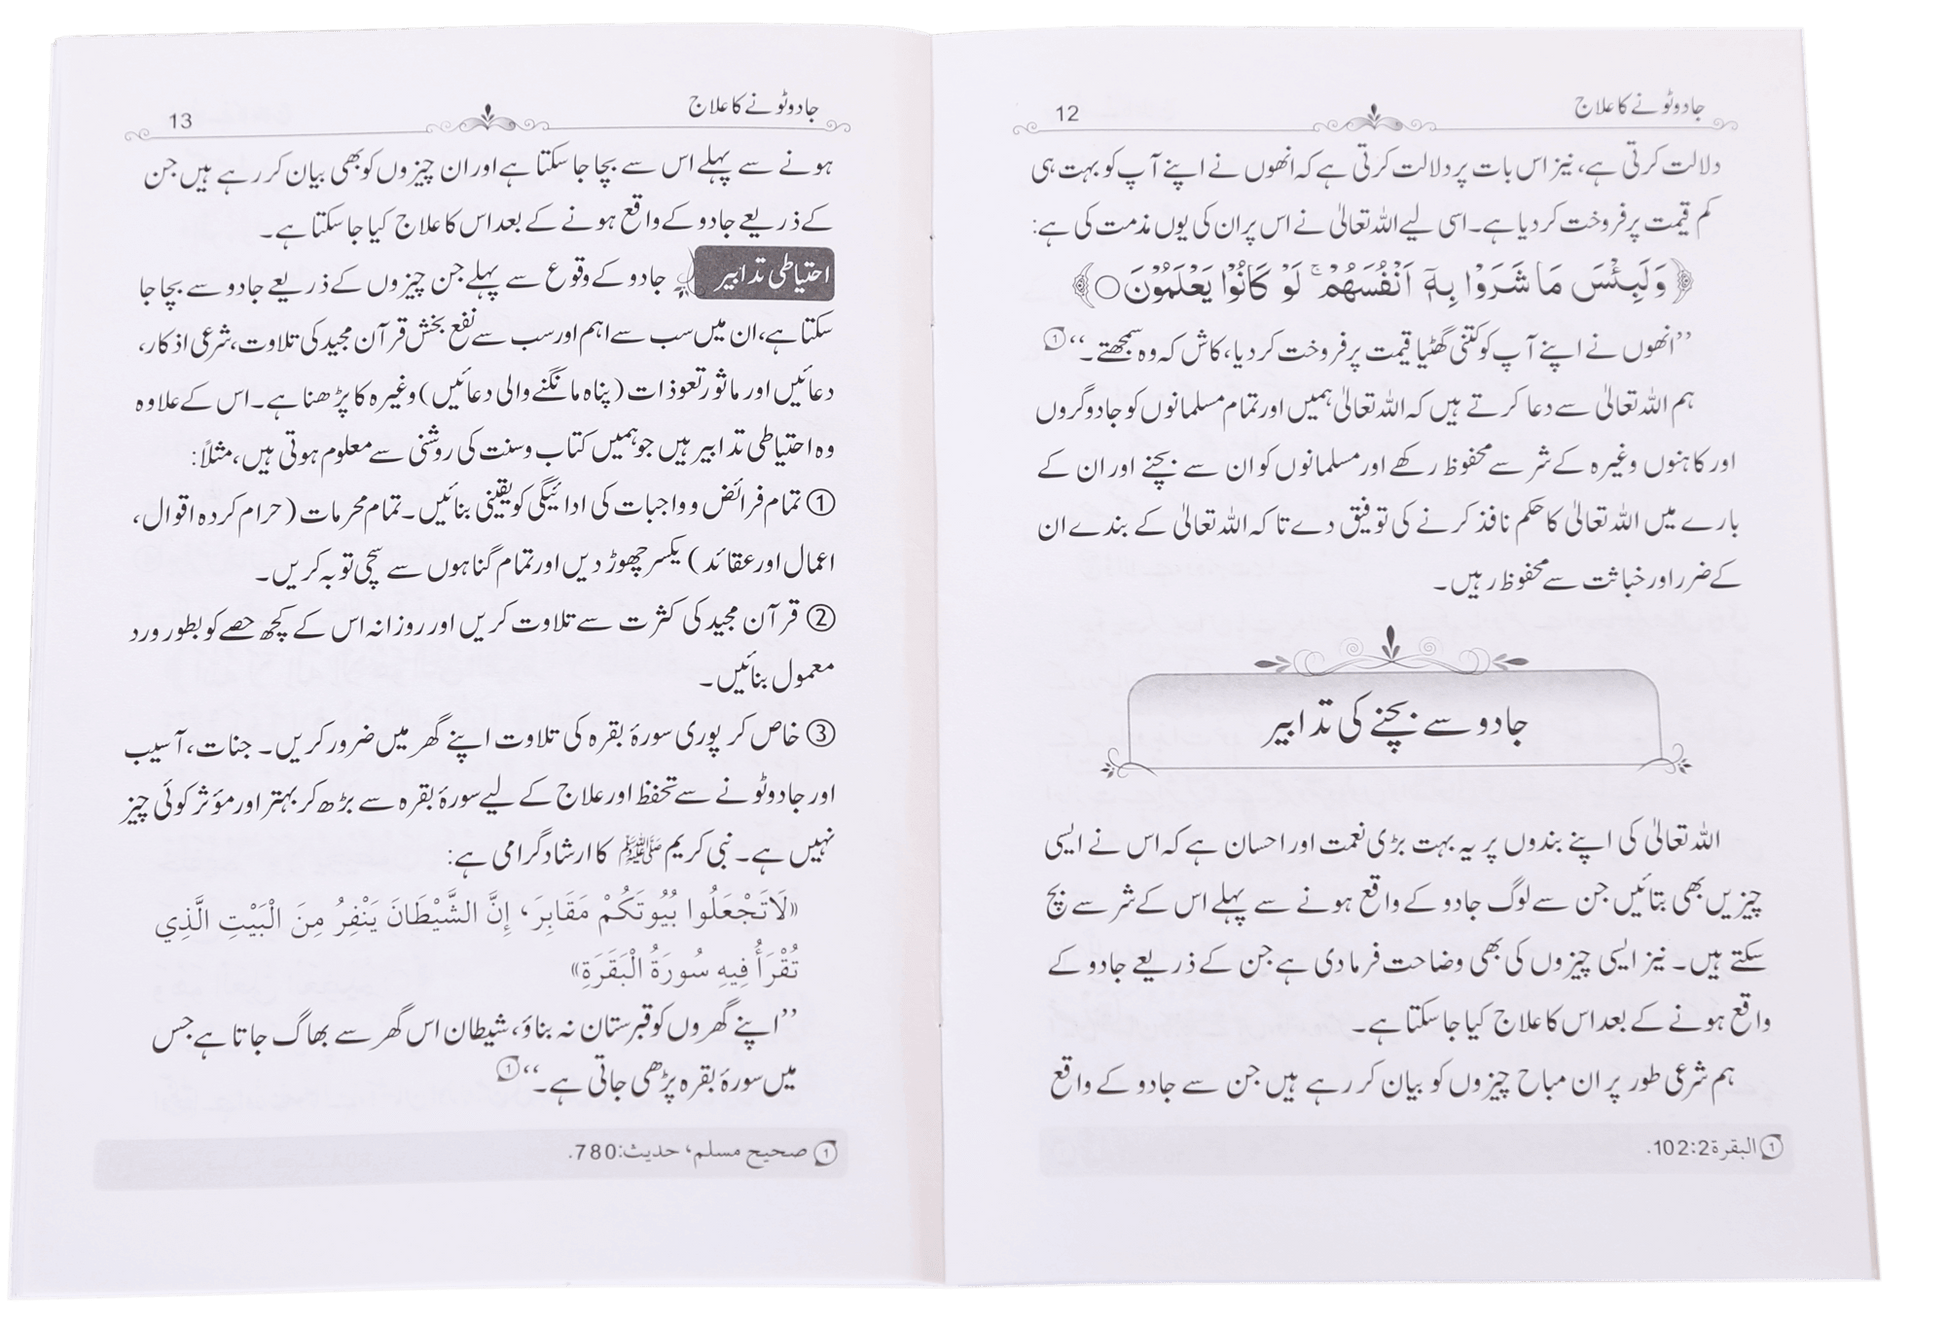 جادو ٹونے کا علاج 12
دلالت کرتی ہے، نیز اس بات پر دلالت کرتی ہے کہ انھوں نے اپنے آپ کو بہت ہی
کم قیمت پر فروخت کر دیا ہے۔ اسی لیے اللہ تعالیٰ نے اس پر ان کی یوں مذمت کی ہے:
﴿وَلَبِئْسَ مَا شَرَوْا بِهٖٓ اَنْفُسَهُمْ ۚ لَوْ كَانُوْا يَعْلَمُوْنَ ○﴾
’’انھوں نے اپنے آپ کو کتنی گھٹیا قیمت پر فروخت کر دیا، کاش کہ وہ سمجھتے۔‘‘ ①
ہم اللہ تعالیٰ سے دعا کرتے ہیں کہ اللہ تعالیٰ ہمیں اور تمام مسلمانوں کو جادوگروں
اور کاہنوں وغیرہ کے شر سے محفوظ رکھے اور مسلمانوں کو ان سے بچنے اور ان کے
بارے میں اللہ تعالیٰ کا حکم نافذ کرنے کی توفیق دے تاکہ اللہ تعالیٰ کے بندے ان
کے ضرر اور خباثت سے محفوظ رہیں۔
جادو سے بچنے کی تدابیر
اللہ تعالیٰ کی اپنے بندوں پر یہ بہت بڑی نعمت اور احسان ہے کہ اس نے ایسی
چیزیں بھی بتائیں جن سے لوگ جادو کے واقع ہونے سے پہلے اس کے شر سے بچ
سکتے ہیں۔ نیز ایسی چیزوں کی بھی وضاحت فرما دی ہے جن کے ذریعے جادو کے
واقع ہونے کے بعد اس کا علاج کیا جا سکتا ہے۔
ہم شرعی طور پر ان مباح چیزوں کو بیان کر رہے ہیں جن سے جادو کے واقع
① البقرة 102:2.
جادو ٹونے کا علاج 13
ہونے سے پہلے اس سے بچا جا سکتا ہے اور ان چیزوں کو بھی بیان کر رہے ہیں جن
کے ذریعے جادو کے واقع ہونے کے بعد اس کا علاج کیا جا سکتا ہے۔
احتیاطی تدابیر جادو کے وقوع سے پہلے جن چیزوں کے ذریعے جادو سے بچا جا
سکتا ہے، ان میں سب سے اہم اور سب سے نفع بخش قرآن مجید کی تلاوت، شرعی اذکار،
دعائیں اور ماثور تعوذات (پناہ مانگنے والی دعائیں) وغیرہ کا پڑھنا ہے۔ اس کے علاوہ
وہ احتیاطی تدابیر ہیں جو ہمیں کتاب وسنت کی روشنی سے معلوم ہوتی ہیں، مثلاً:
① تمام فرائض و واجبات کی ادائیگی کو یقینی بنائیں۔ تمام محرمات (حرام کردہ اقوال،
اعمال اور عقائد) یکسر چھوڑ دیں اور تمام گناہوں سے سچی توبہ کریں۔
② قرآن مجید کی کثرت سے تلاوت کریں اور روزانہ اس کے کچھ حصے کو بطور ورد
معمول بنائیں۔
③ خاص کر پوری سورۂ بقرہ کی تلاوت اپنے گھر میں ضرور کریں۔ جنات، آسیب
اور جادو ٹونے سے تحفظ اور علاج کے لیے سورۂ بقرہ سے بڑھ کر بہتر اور مؤثر کوئی چیز
نہیں ہے۔ نبی کریم ﷺ کا ارشاد گرامی ہے:
«لَا تَجْعَلُوا بُيُوتَكُمْ مَقَابِرَ، إِنَّ الشَّيْطَانَ يَنْفِرُ مِنَ الْبَيْتِ الَّذِي
تُقْرَأُ فِيهِ سُورَةُ الْبَقَرَةِ»
’’اپنے گھروں کو قبرستان نہ بناؤ، شیطان اس گھر سے بھاگ جاتا ہے جس
میں سورۂ بقرہ پڑھی جاتی ہے۔‘‘ ①
① صحيح مسلم، حديث:780.